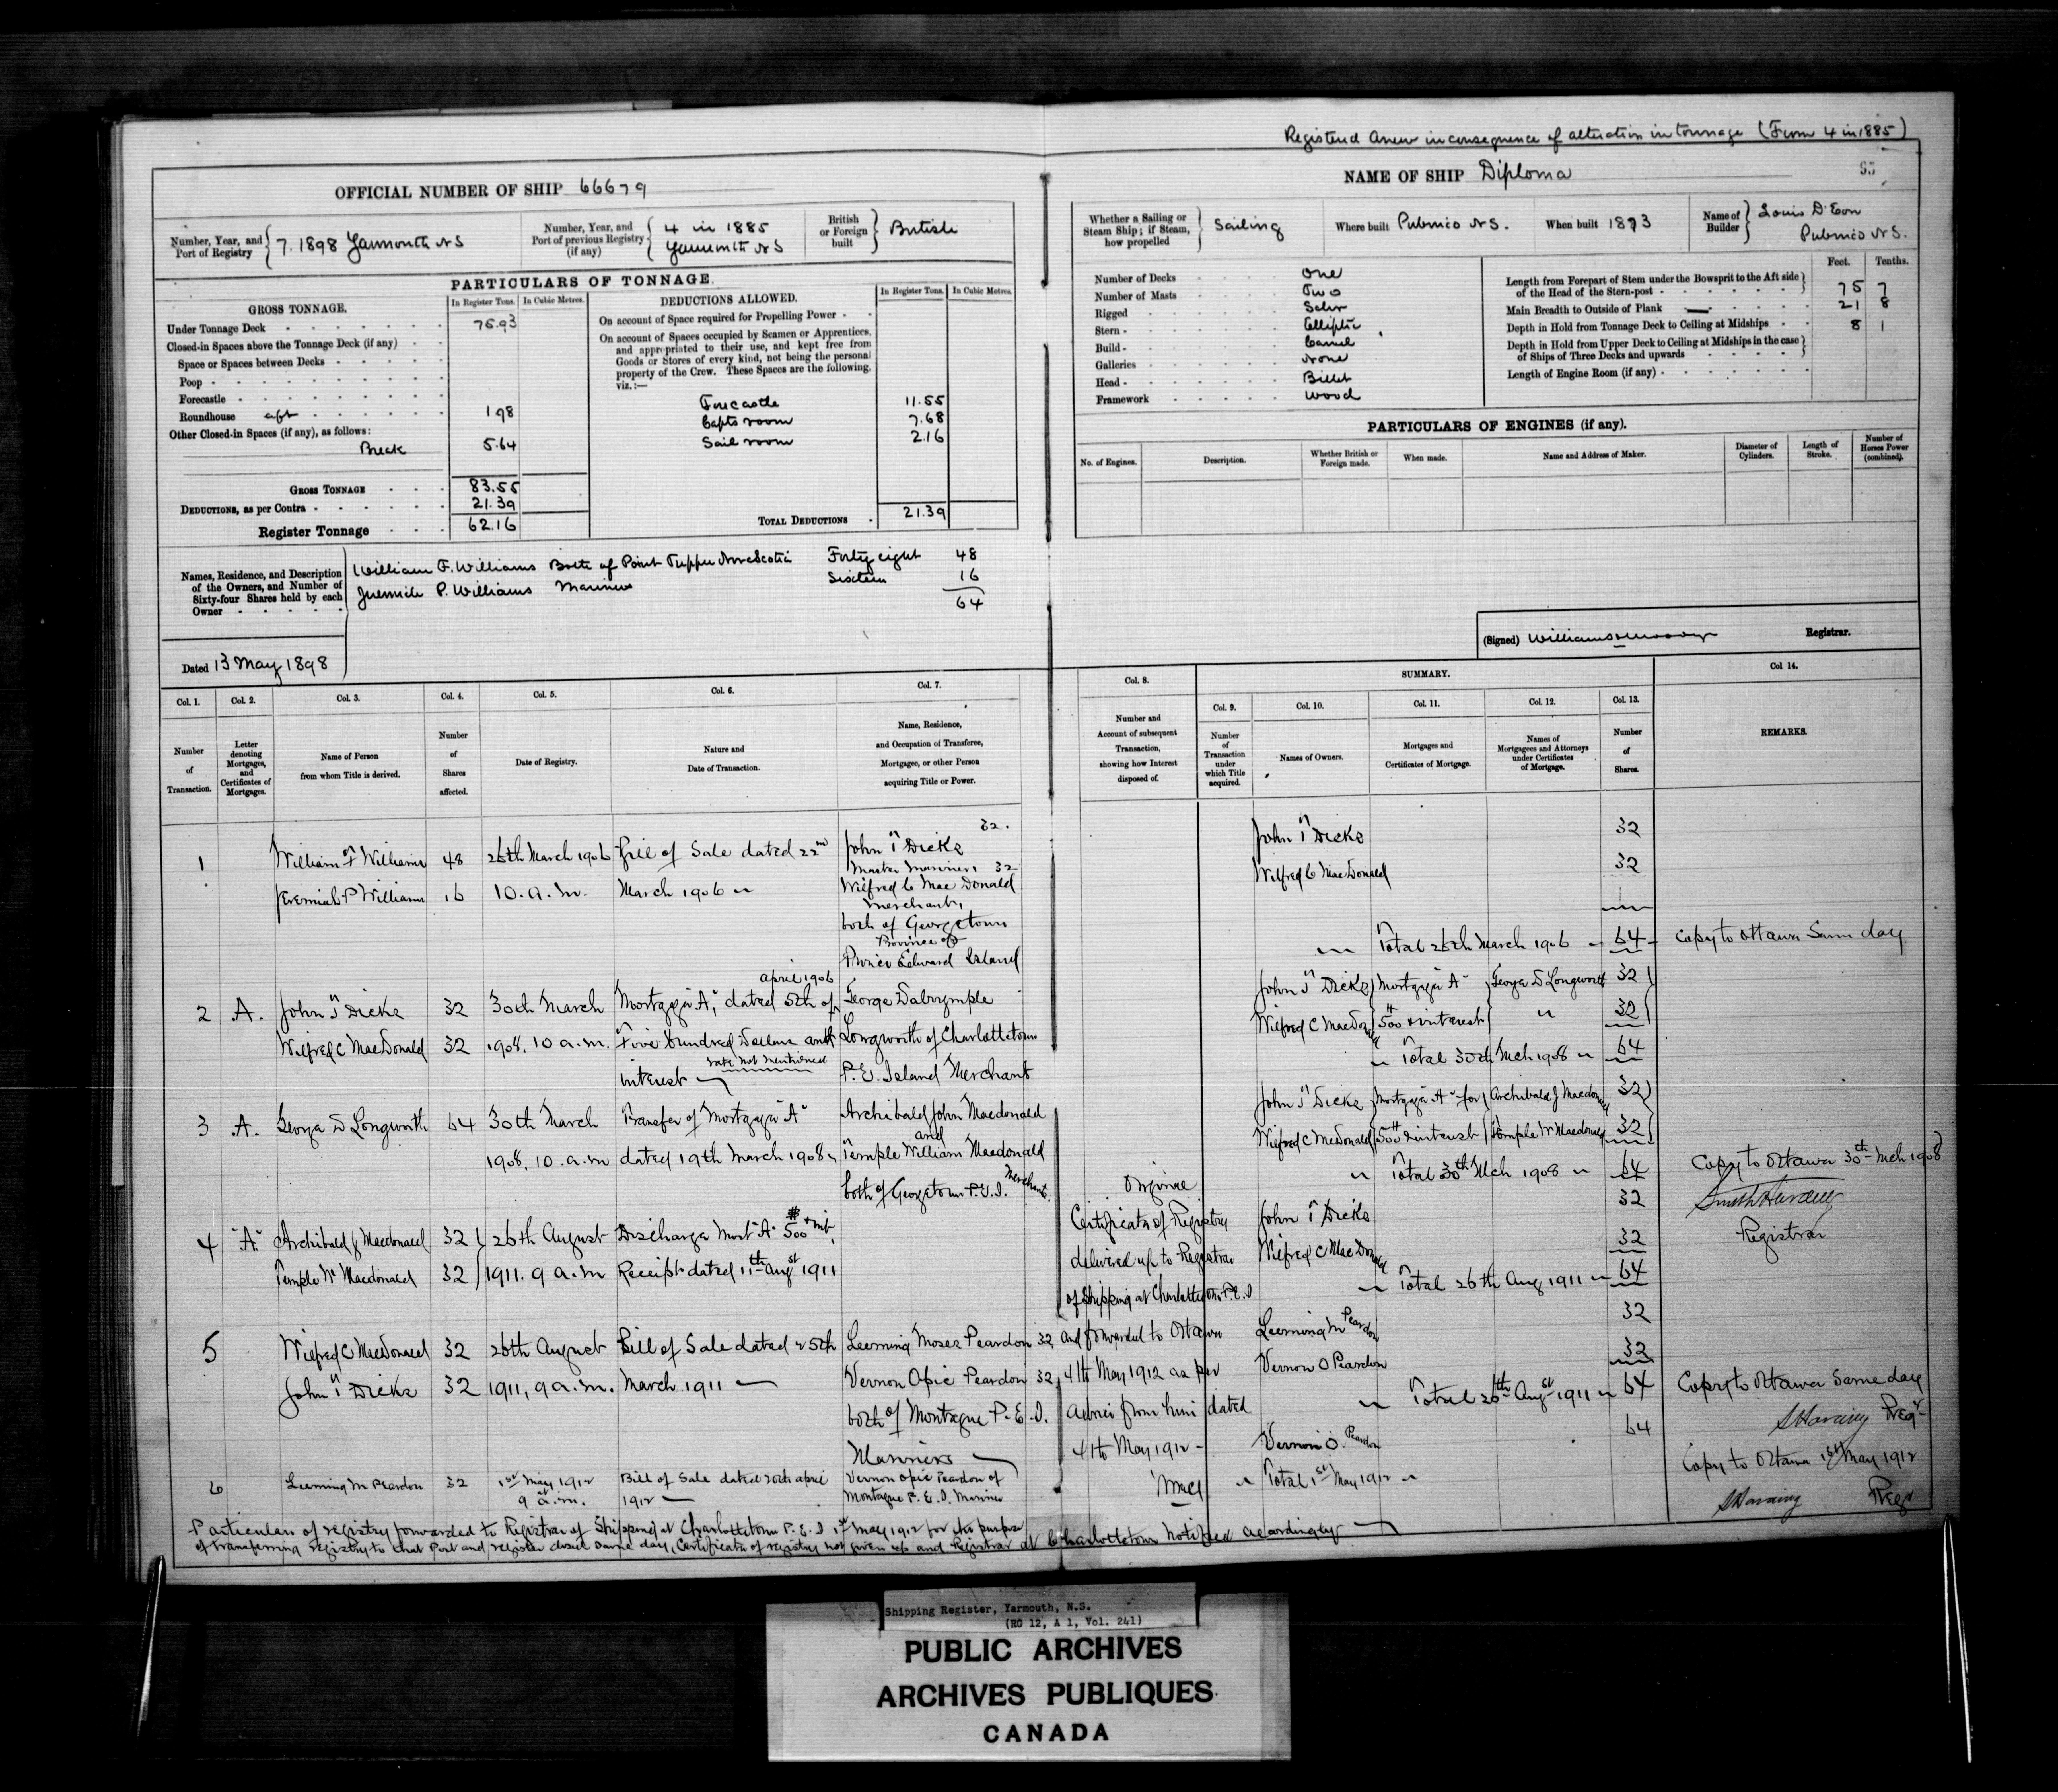 Registered Anew in consequence of alteration in tonnage (From 4 in 1885)
OFFICIAL NUMBER OF SHIP 66679
NAME OF SHIP Diploma
55
Number, Year, and Port of Registry 7. 1898 Yarmouth NS
Number, Year, and Port of previous Registry (if any) 4 in 1885 Yarmouth NS
British or Foreign built British
Whether a Sailing or Steam Ship; if Steam, how propelled Sailing
Where built Pubnico N.S.
When built 1873
Name of Builder Louis D'Eon Pubnico N.S.
PARTICULARS OF TONNAGE.
GROSS TONNAGE.
In Register Tons. In Cubic Metres.
Under Tonnage Deck 75.93
Closed-in Spaces above the Tonnage Deck (if any)
Space or Spaces between Decks
Poop
Forecastle
Roundhouse aft 1 98
Other Closed-in Spaces (if any), as follows:
Break 5.64
GROSS TONNAGE 83.55
DEDUCTIONS, as per Contra 21.39
Register Tonnage 62.16
DEDUCTIONS ALLOWED.
In Register Tons. In Cubic Metres.
On account of Space required for Propelling Power
On account of Spaces occupied by Seamen or Apprentices,
and appropriated to their use, and kept free from
Goods or Stores of every kind, not being the personal
property of the Crew. These Spaces are the following,
viz.:—
Forecastle 11.55
Capts room 7.68
Sail room 2.16
TOTAL DEDUCTIONS 21.39
Number of Decks One
Number of Masts Two
Rigged Schr
Stern Elliptic
Build Carvel
Galleries None
Head Billet
Framework Wood
Feet. Tenths.
Length from Forepart of Stem under the Bowsprit to the Aft side of the Head of the Stern-post 75 7
Main Breadth to Outside of Plank 21 8
Depth in Hold from Tonnage Deck to Ceiling at Midships 8 1
Depth in Hold from Upper Deck to Ceiling at Midships in the case of Ships of Three Decks and upwards
Length of Engine Room (if any)
PARTICULARS OF ENGINES (if any).
No. of Engines. Description. Whether British or Foreign made. When made. Name and Address of Maker. Diameter of Cylinders. Length of Stroke. Number of Horses Power (combined).
Names, Residence, and Description of the Owners, and Number of Sixty-four Shares held by each Owner
William F. Williams Both of Point Tupper Nova Scotia Forty eight 48
Jeremiah P. Williams Mariners Sixteen 16
64
Dated 13 May 1898
(Signed) Registrar.
Col. 1. Col. 2. Col. 3. Col. 4. Col. 5. Col. 6. Col. 7. Col. 8. SUMMARY. Col. 9. Col. 10. Col. 11. Col. 12. Col. 13. Col 14.
Number of Transaction.
Letter denoting Mortgages, and Certificates of Mortgages.
Name of Person from whom Title is derived.
Number of Shares affected.
Date of Registry.
Nature and Date of Transaction.
Name, Residence, and Occupation of Transferee, Mortgagee, or other Person acquiring Title or Power.
Number and Account of subsequent Transaction, showing how Interest disposed of.
Number of Transaction under which Title acquired.
Names of Owners.
Mortgages and Certificates of Mortgage.
Names of Mortgagees and Attorneys under Certificates of Mortgage.
Number of Shares.
REMARKS.
1 William F Williams 48 26th March 1906 Bill of Sale dated 22nd John T Dicks 32.
Master Mariner, 32
Jeremiah P Williams 16 10. a.m. March 1906 Wilfred C MacDonald
Merchant,
both of Georgetown
Province of
Prince Edward Island
John T Dicks 32
Wilfred C MacDonald 32
Total 26th March 1906 64 Copy to Ottawa Same day
2 A. John T Dicks 32 30th March Mortgage "A", dated 5th of April 1906 George Dalrymple
Wilfred C MacDonald 32 1908. 10 a.m. Five Hundred Dollars and Longworth of Charlottetown
interest rate not mentioned P.E. Island Merchant
John T Dicks Mortgage A George D Longworth 32
Wilfred C MacDonald 500 & interest " 32
Total 30th Mch 1908 64
3 A. George D Longworth 64 30th March Transfer of Mortgage "A" Archibald John Macdonald
and
1908, 10. a.m dated 19th March 1908 Temple William Macdonald
both of Georgetown P.E.I. Merchants
John T Dicks Mortgage A for Archibald J Macdonald 32
Wilfred C McDonald 500 & interest Temple W Macdonald 32
Total 30th Mch 1908 64 Copy to Ottawa 30th Mch 1908
Registrar
4 "A" Archibald J Macdonald 32 26th August Discharge Mort "A" $500 & int.
Temple W Macdonald 32 1911. 9 a.m Receipt dated 11th Augst 1911
John T Dicks 32
Wilfred C MacDonald 32
Total 26th Aug 1911 64
5 Wilfred C MacDonald 32 26th August Bill of Sale dated 25th Leeming Moses Peardon 32
John T Dicks 32 1911, 9 a.m. March 1911 Vernon Opie Peardon 32
both of Montague P.E.I.
Mariners
Leeming M Peardon 32
Vernon O Peardon 32
Total 26th Augst 1911 64 Copy to Ottawa Same day
Regr
6 Leeming M Peardon 32 1st May 1912 Bill of Sale dated 20th April Vernon Opie Peardon of
9 a.m. 1912 Montague P.E.I. Mariner
Vernon O. Peardon 64
Total 1st May 1912
Copy to Ottawa 1st May 1912
Regr
Certificate of Registry
delivered up to Registrar
of Shipping at Charlottetown P.E.I
and forwarded to Ottawa
4th May 1912 as per
advice from him dated
4th May 1912
Particulars of registry forwarded to Registrar of Shipping at Charlottetown P.E.I 1st May 1912 for the purpose
of transferring registry to that Port and register closed same day, Certificate of registry not given up and Registrar at Charlottetown notified accordingly
Shipping Register, Yarmouth, N.S.
(RG 12, A 1, Vol. 241)
PUBLIC ARCHIVES
ARCHIVES PUBLIQUES
CANADA